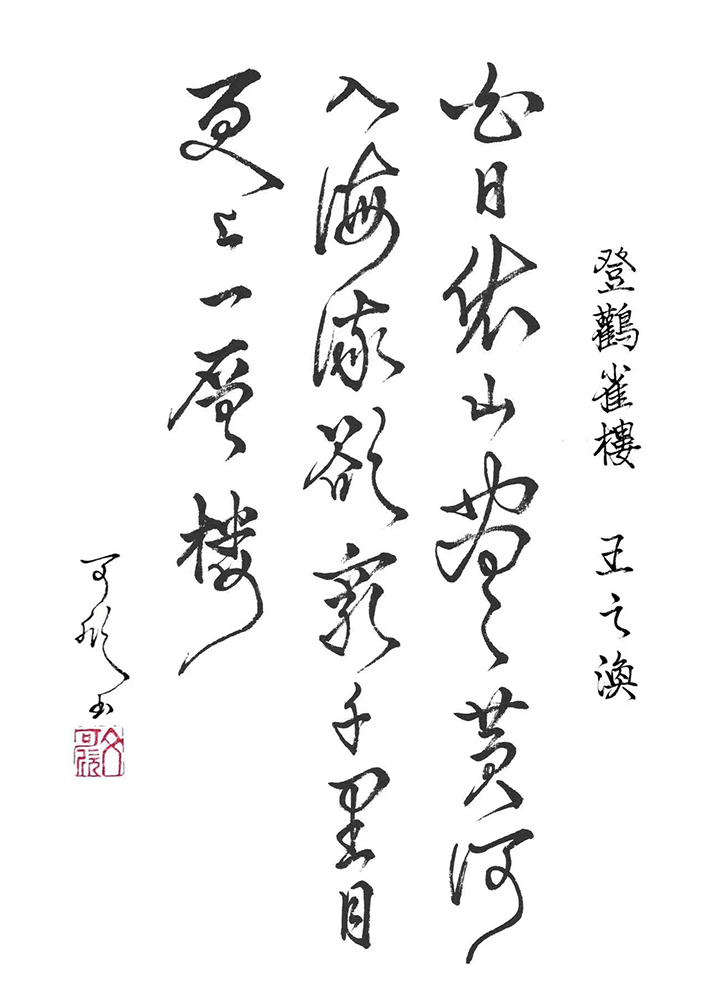 登鸛雀樓 王之渙
白日依山盡黄河
入海流欲窮千里目
更上一層楼
可欣书